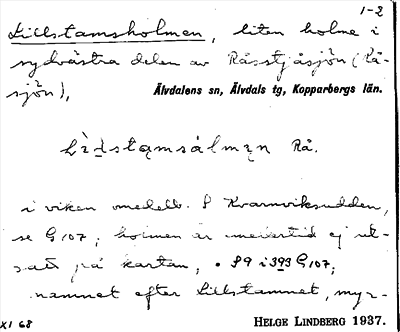 1-2
Lillstamsholmen, liten holme i
sydvästra delen av Råsstjåsjön (Rå-
sjön),
Älvdalens sn, Älvdals tg, Kopparbergs län.
Rå.
i viken omedelb. S Kvarnviksudden,
se G107; holmen är emellertid ej ut-
satt på kartan, • 59 i 393 G107;
namnet efter Lillstamnet, myr-
XI 68
HELGE LINDBERG 1937.